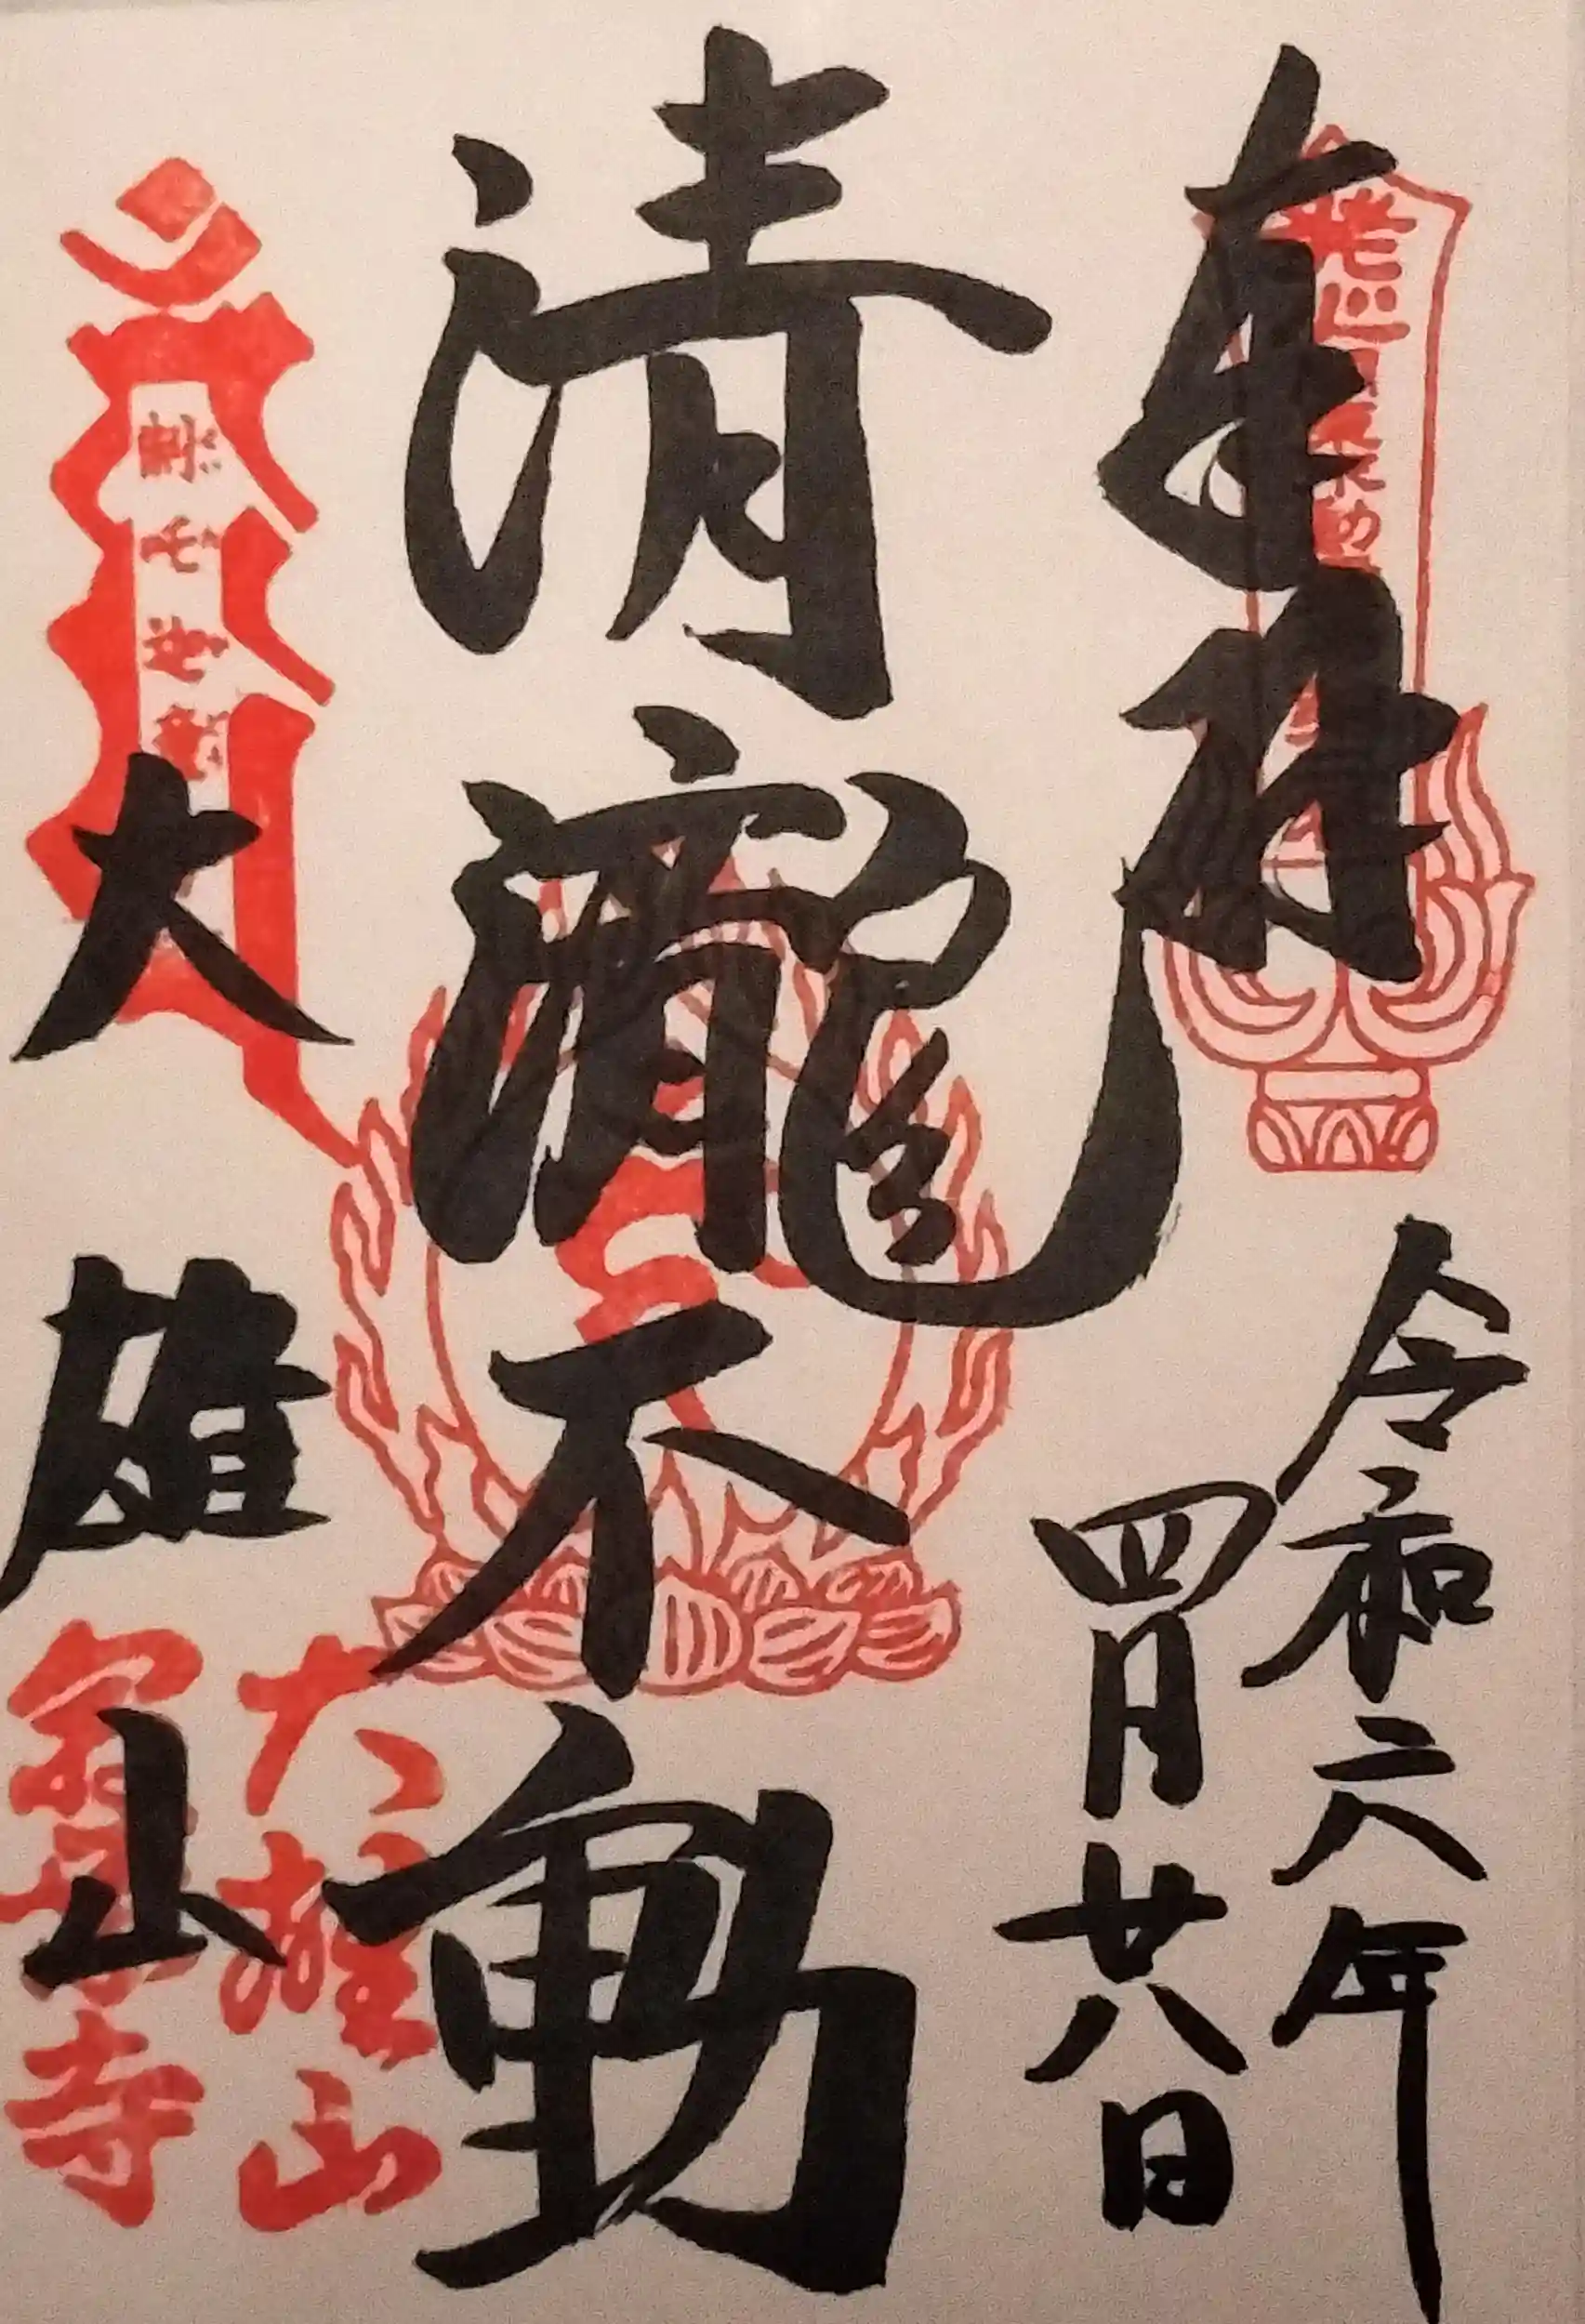 奉拜
令和六年
四月廿八日
清瀧不動
大雄山
大雄山
最乗寺